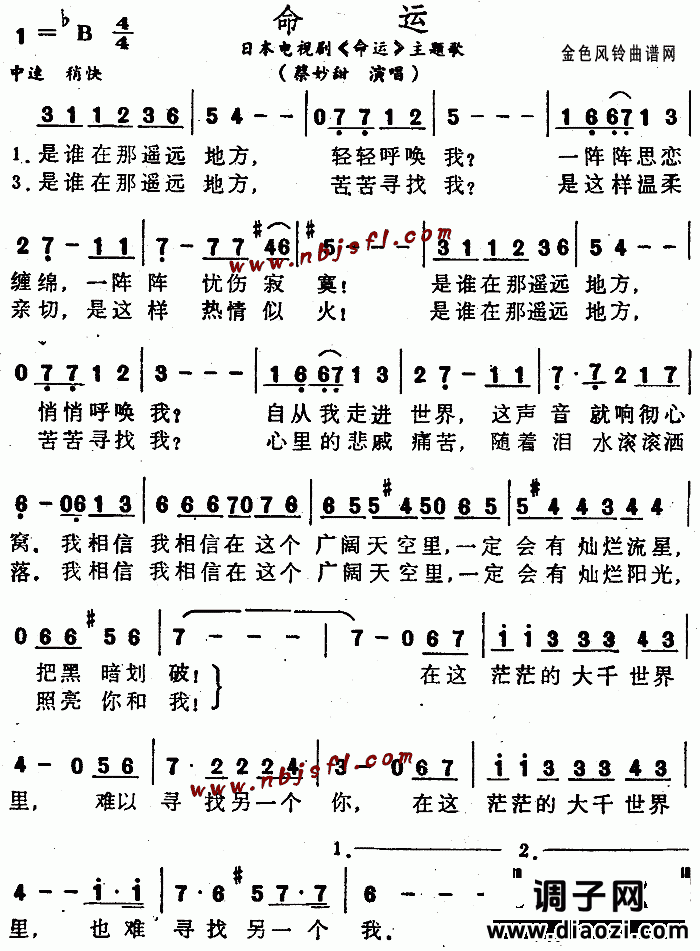 命 运
1=♭B 4/4
日本电视剧《命运》主题歌
金色风铃曲谱网
中速 稍快
（蔡妙甜 演唱）
3 1 1 2 3 6 | 5 4 - - | 0 7 7 1 2 | 5 - - - | 1 6 6 7 1 3 |
1.是谁在那遥远 地方， 轻轻呼唤 我？ 一阵阵思恋
3.是谁在那遥远 地方， 苦苦寻找 我？ 是这样温柔
2 7 - 1 1 | 7 - 7 7 #4 6 | #5 - - - | 3 1 1 2 3 6 | 5 4 - - |
www.nbjsfl.com
缠绵，一阵阵 忧伤寂 寞！ 是谁在那遥远 地方，
亲切，是这样 热情似 火！ 是谁在那遥远 地方，
0 7 7 1 2 | 3 - - - | 1 6 6 7 1 3 | 2 7 - 1 1 | 7 · 7 2 1 7 |
悄悄呼唤 我？ 自从我走进 世界，这声 音 就响彻心
苦苦寻找 我？ 心里的悲戚 痛苦，随着 泪 水滚滚洒
6 - 0 6 1 3 | 6 6 6 7 0 7 6 | 6 5 5 #4 5 0 6 5 | 5 #4 4 3 4 4 |
窝。我相信 我相信在这个 广阔天空里，一定 会有 灿烂流星，
落。我相信 我相信在这个 广阔天空里，一定 会有 灿烂阳光，
0 6 6 #5 6 | 7 - - - | 7 - 0 6 7 | i i 3 3 4 3 |
把黑 暗划 破！ 在这 茫茫的 大千 世界
照亮 你和 我！
4 - 0 5 6 | 7 · 2 2 2 4 | 3 - 0 6 7 | i i 3 3 4 3 |
www.nbjsfl.com
里， 难以 寻 找另一个 你， 在这 茫茫的 大千 世界
1. 2.
4 - - i · i | 7 · 7 #5 7 · 7 | 6 - -
里， 也难 寻找 另一个 我。
调子网
www.diaozi.com